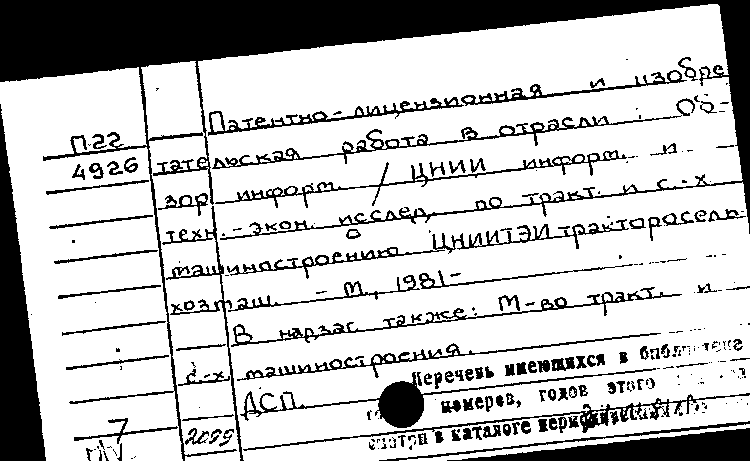 Патентно-лицензионная и изобре
П22
4926
тательская работа в отрасли : Об-
зор. информ. / ЦНИИ информ. и
техн.-экон. исслед. по тракт. и с.-х.
машиностроению ЦНИИТЭИтракторосель
хозмаш. - М., 1981-
В надзаг. также: М-во тракт. и
с.-х. машиностроения.
ДСП.
Перечень имеющихся в библиотеке
номеров, годов этого
7
2099
смотри в каталоге